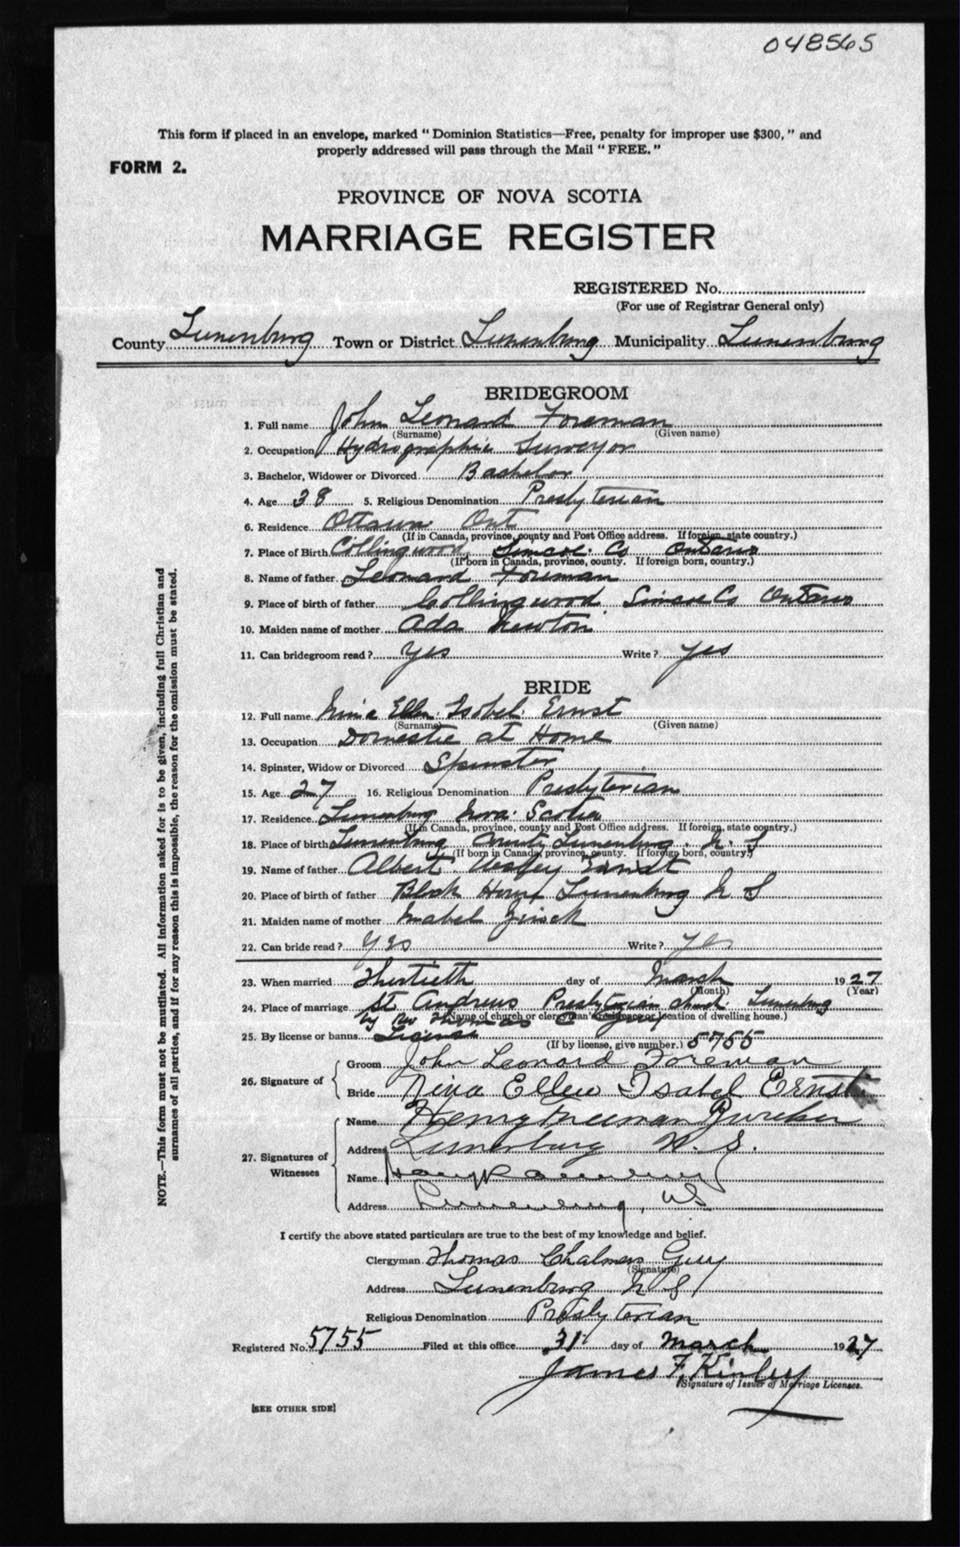 048565
This form if placed in an envelope, marked "Dominion Statistics—Free, penalty for improper use $300," and
properly addressed will pass through the Mail "FREE."
FORM 2.
PROVINCE OF NOVA SCOTIA
MARRIAGE REGISTER
REGISTERED No.
(For use of Registrar General only)
County Lunenburg Town or District Lunenburg Municipality Lunenburg
BRIDEGROOM
1. Full name John Leonard Foreman
(Surname) (Given name)
2. Occupation Hydrographic Surveyor
3. Bachelor, Widower or Divorced Bachelor
4. Age 38 5. Religious Denomination Presbyterian
6. Residence Ottawa Ont
(If in Canada, province, county and Post Office address. If foreign, state country.)
7. Place of Birth Collingwood, Simcoe Co Ontario
(If born in Canada, province, county. If foreign born, country.)
8. Name of father Leonard Foreman
9. Place of birth of father Collingwood, Simcoe Co Ontario
10. Maiden name of mother Ada Newton
11. Can bridegroom read? Yes Write? yes
BRIDE
12. Full name Nina Ellen Isobel Ernst
(Surname) (Given name)
13. Occupation Domestic at Home
14. Spinster, Widow or Divorced Spinster
15. Age 27 16. Religious Denomination Presbyterian
17. Residence Lunenburg Nova Scotia
(If in Canada, province, county and Post Office address. If foreign, state country.)
18. Place of birth Lunenburg County Lunenburg N. S
(If born in Canada, province, county. If foreign born, country.)
19. Name of father Albert Wesley Ernst
20. Place of birth of father Block House Lunenburg N S
21. Maiden name of mother Mabel Zinck
22. Can bride read? Yes Write? yes
23. When married Thirtieth day of March 1927
(Month) (Year)
24. Place of marriage St. Andrews Presbyterian Church Lunenburg
by Thomas C Guy
(Name of church or clergyman's residence or location of dwelling house.)
25. By license or banns License
(If by license, give number.) 5755
26. Signature of
Groom John Leonard Foreman
Bride Nina Ellen Isabel Ernst
27. Signatures of Witnesses
Name Henry Freeman Zwicker
Address Lunenburg N. S.
Name
Address Lunenburg, NS
I certify the above stated particulars are true to the best of my knowledge and belief.
Clergyman Thomas Chalmers Guy
(Signature)
Address Lunenburg N S
Religious Denomination Presbyterian
Registered No. 5755 Filed at this office 31st day of March 1927
James F. Kinley
Signature of Issuer of Marriage Licenses.
[SEE OTHER SIDE]
NOTE.—This form must not be mutilated. All information asked for is to be given, including full Christian and
surnames of all parties, and if for any reason this is impossible, the reason for the omission must be stated.